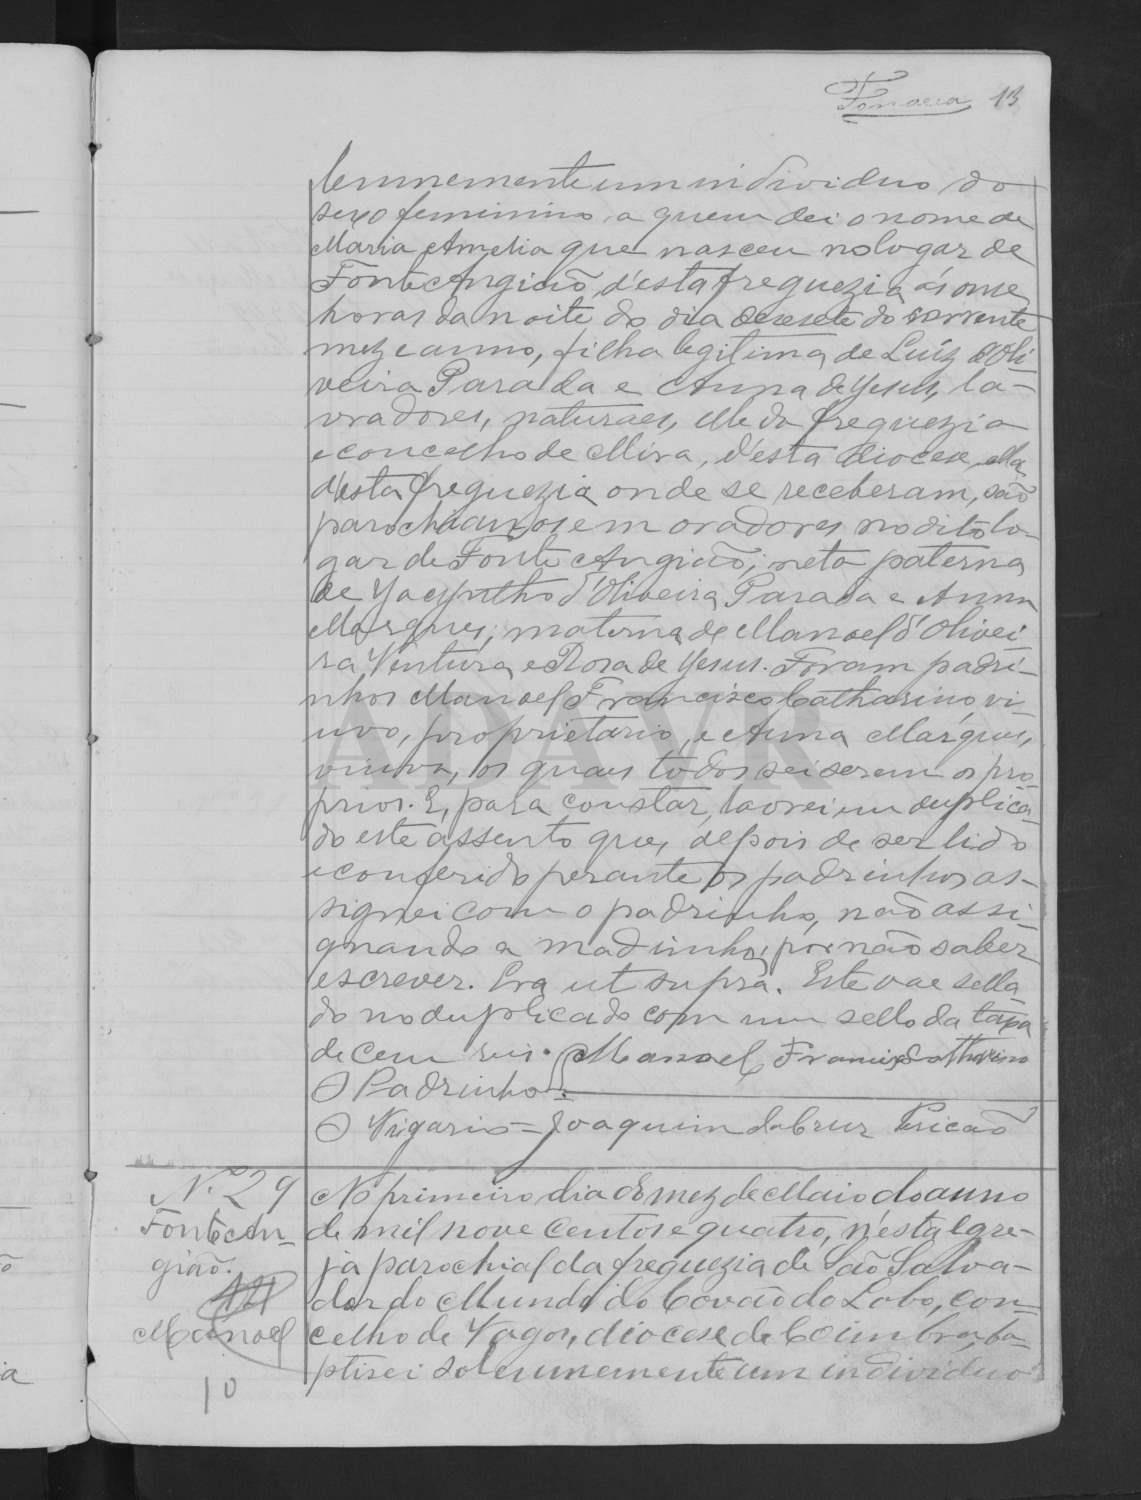 Fonseca 13
lemnemente um individuo do
sexo feminino, a quem dei o nome de
Maria Amelia que nasceu no logar de
Fonte Angião, d'esta freguezia ás onse
horas da noite do dia desesete do corrente
mez e anno, filha legitima de Luiz d'Oli-
veira Parada e Anna de Jesus, la-
vradores, naturaes, elle da freguezia
e concelho de Mira, d'esta diocese, ella
d'esta freguezia onde se receberam, são
parochianos e moradores no dito lo-
gar de Fonte Angião; neta paterna
de Jacyntho d'Oliveira Parada e Anna
Marques; materna de Manoel d'Olivei-
ra Ventura e Rosa de Jesus. Foram padri-
nhos Manoel Francisco Catharino, vi-
uvo, proprietario, e Anna Marques,
viuva, os quaes todos sei serem os pro-
prios. E, para constar, lavrei em duplica-
do este assento que, depois de ser lido
e conferido perante os padrinhos as-
signei com o padrinho, não assi-
gnando a madrinha, por não saber
escrever. Era ut supra. Este vae sella-
do no duplicado com um sello da taxa
de cem reis. Manoel Francisco Catharino
O Padrinho
O Vigario = Joaquim da Cruz Pericão
N.º 29
Fonte An-
gião.
Manoel
10
No primeiro dia do mez de Maio do anno
de mil nove centos e quatro, n'esta Egre-
ja parochial da freguezia de São Salva-
dor do Mundo do Covão do Lobo, con-
celho de Vagos, diocese de Coimbra, ba-
ptisei solemnemente um individuo
ADAVR